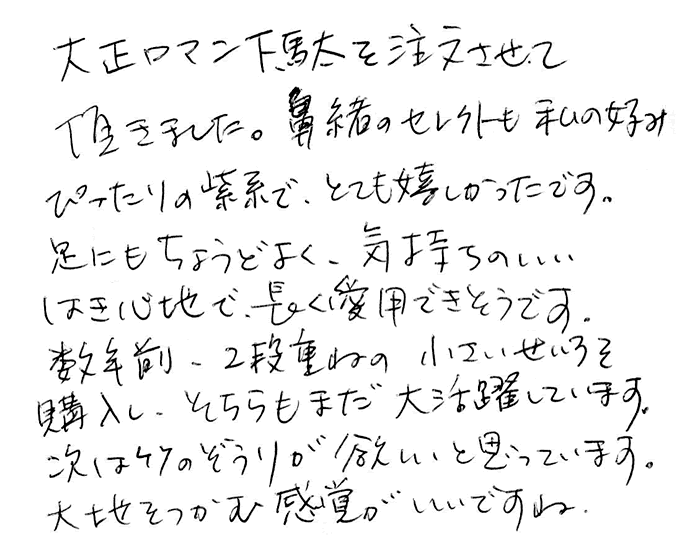 大正ロマン下駄を注文させて
頂きました。鼻緒のセレクトも私の好み
ぴったりの紫系で、とても嬉しかったです。
足にもちょうどよく、気持ちのいい
はき心地で、長く愛用できそうです。
数年前、2段重ねの小さいせいろを
購入し、そちらもまだ大活躍しています。
次は竹のぞうりが欲しいと思っています。
大地をつかむ感覚がいいですね.